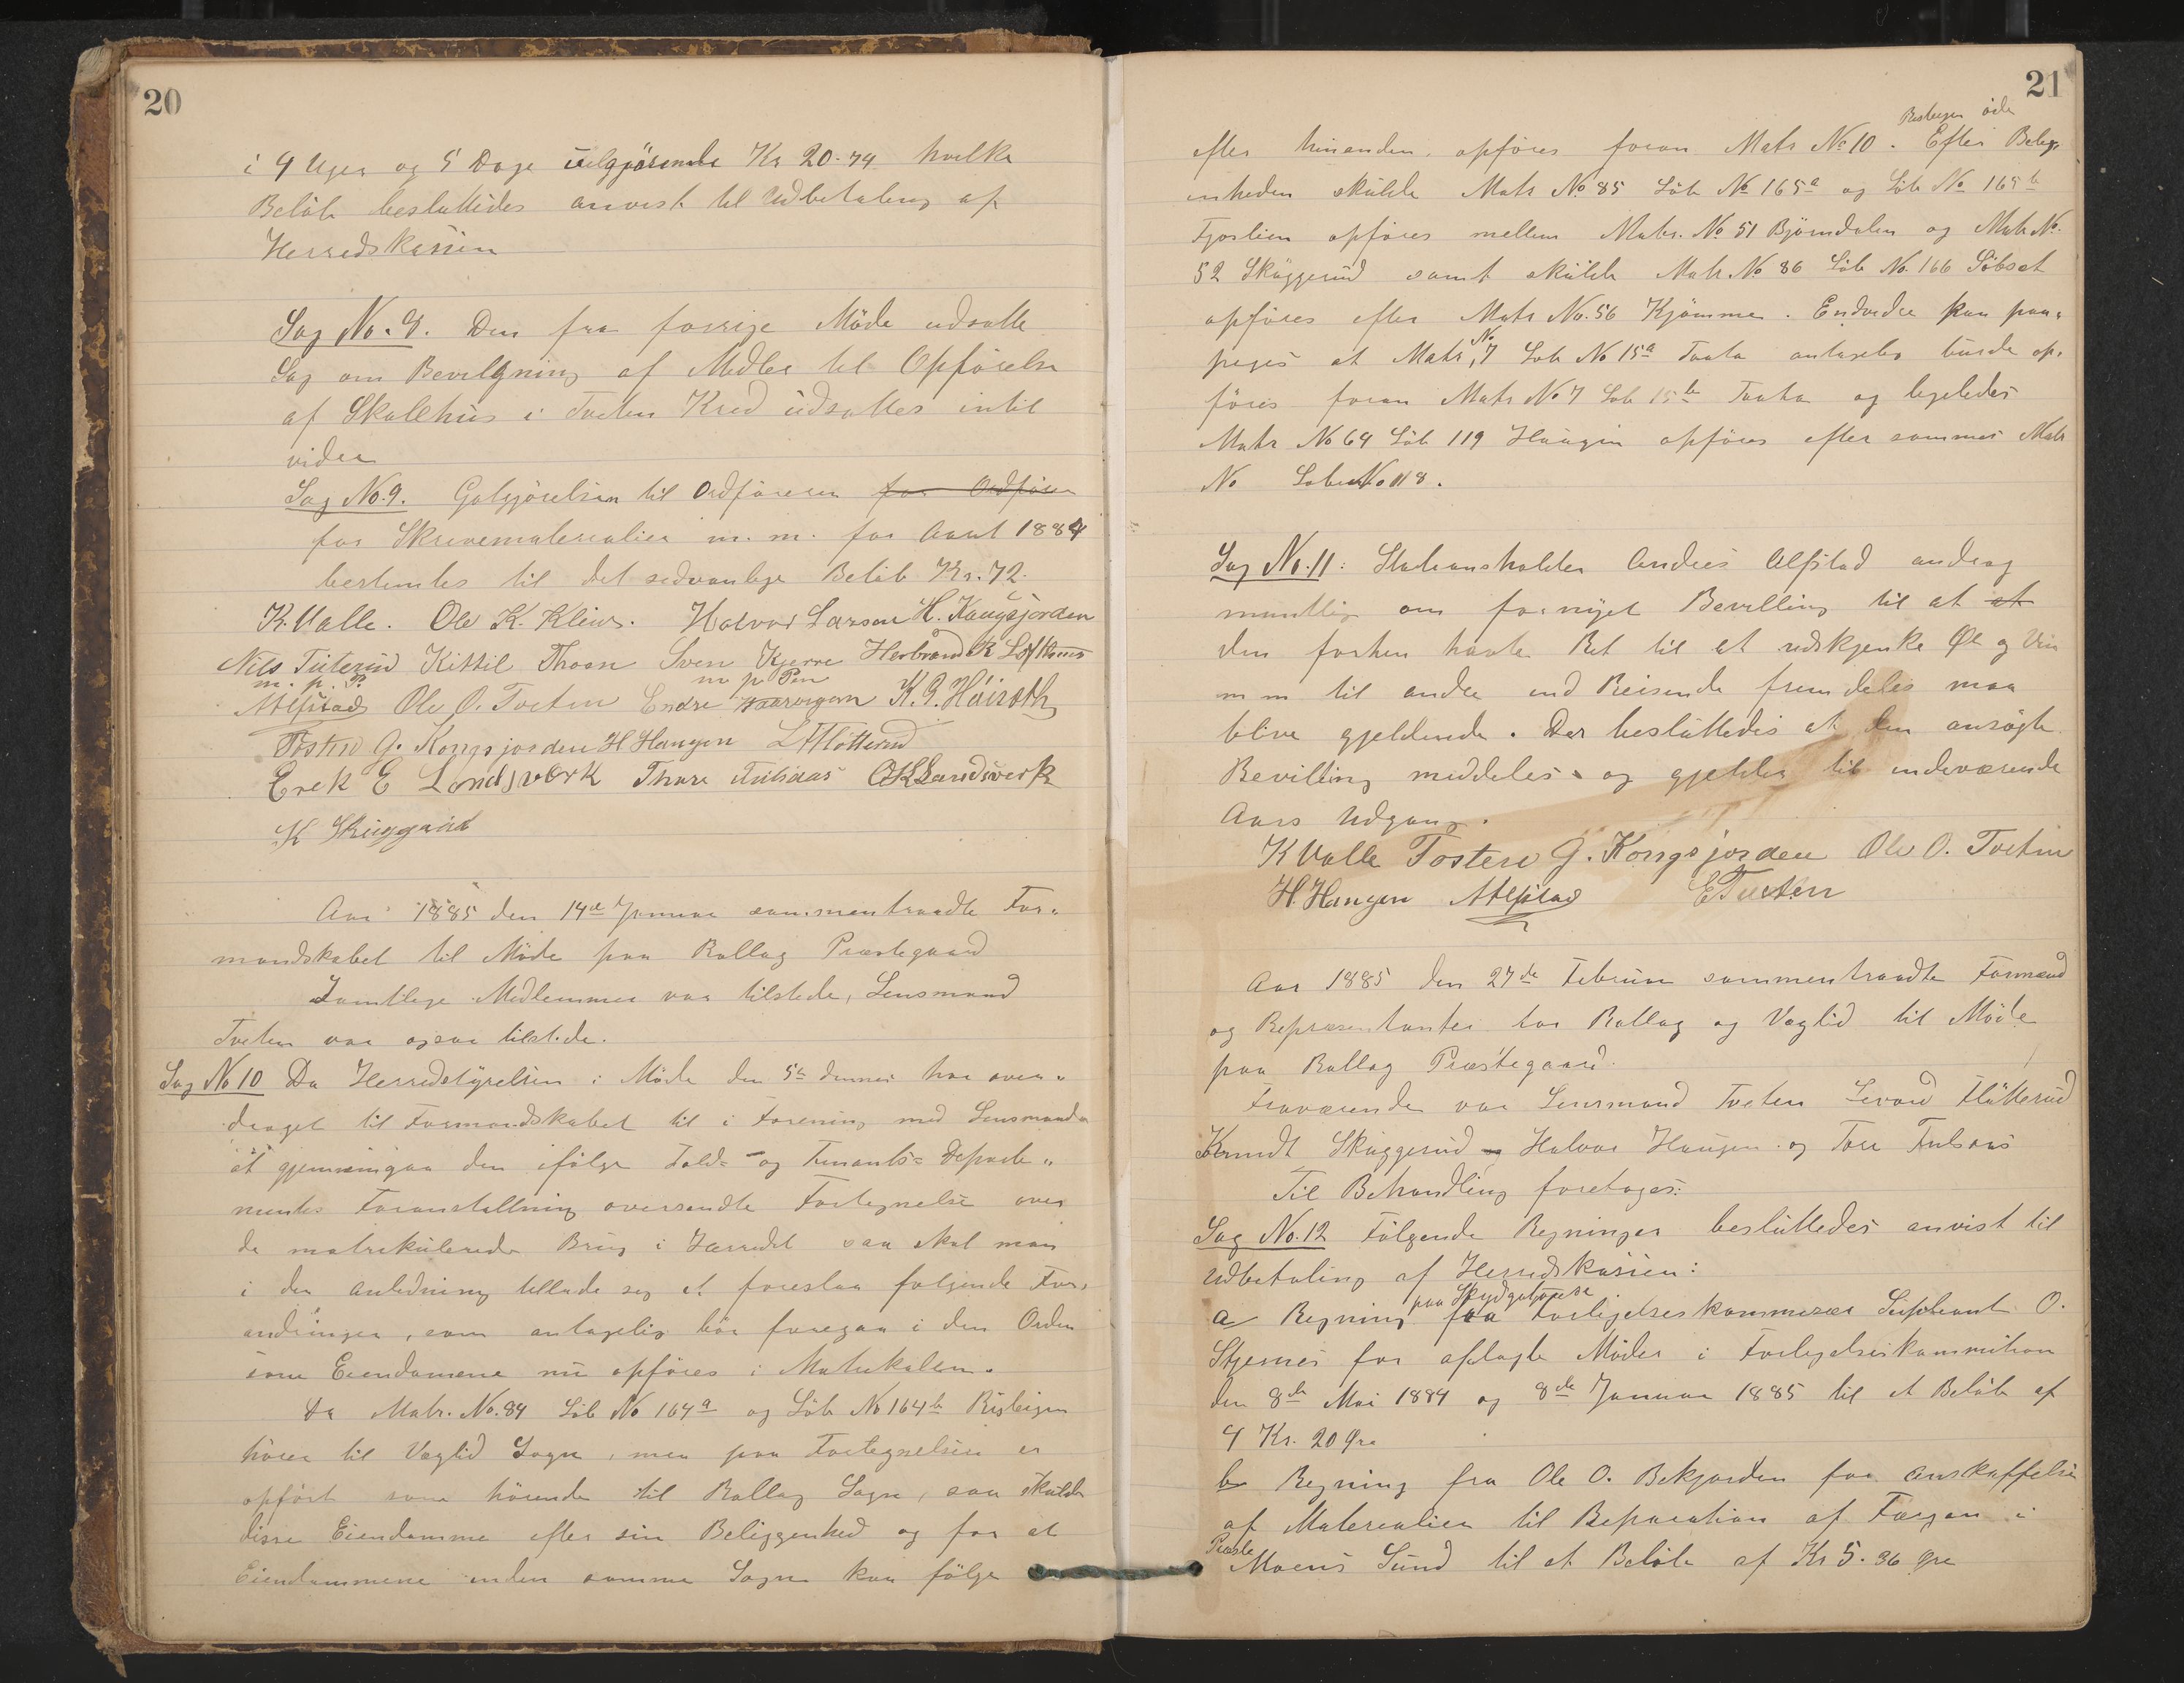 20
i 4 Uger og 5 Dage udgjörende Kr 20.74 hvilke
Belöb besluttedes anvist til Udbetaling af
Herredskassen
Sag No. 8. Den fra forrige Möde udsatte
Sag om Bevilgning af Midler til Opförelse
af Skolehus i Tveten Kred udsattes indtil
videre
Sag No. 9. Godtgjörelsen til Ordföreren for Ordförer
for Skrivematerialier m. m. for Aaret 1884
bestemtes til det sedvanlige Belöb Kr. 72.
K. Valle. Ole K. Kleivs. Halvor Larsen H. Kongsjorden
Nils Tuterud Kittil Thoen Sven Kjerre Herbrand K
m. p. P. m p Pen
AAlfstad Ole O. Tveten Endre K. G.
Tosten G. Kongsjorden H Haugen L Flötterud
Erek E Landsverk Thore Fulsaas OKLandsverk
K Skuggerud
Aar 1885 den 14de Januar sammentraadte For„
mandskabet til Möde paa Rollag Præstegaard
Samtlige Medlemmer var tilstede, Lensmand
Tveten var ogsaa tilstede.
Sag No 10 Da Herredstyrelsen i Möde den 5te dennes har over„
draget til Formandskabet til i Forening med Lensmanden
at gjennemgaa den ifölge Told- og Finants- Departe„
mentes Foranstaltning oversendte Fortegnelse over
de matrikulerede Brug i Herredet saa skal man
i den Anledning tillade sig at foreslaa folgende For„
andringer, som antagelig bör foregaa i den Orden
som Eiendomene nu opföres i Matrikulen.
Da Matr. No. 84 Löb No 164a og Löb No 164b Risteigen
hörer til Væglid Sogn, men paa Fortegnelsen er
opfört som hörende til Rollag Sogn, saa skulde
disse Eiendomme efter sin Beliggenhed og for at
Eiendommene inden samme Sogn kan fölge
21
öde
efter hinanden, opföres foran Matr No 10. Efter Belig„
enheden skulde Matr No 85 Löb No 165a og Löb No 165b
Fjoslien opföres mellem Matr. No 51 Björndalen og Matr No.
52 Skuggerud samt skulde Matr No 86 Löb No. 166 Söbsat
opföres efter Matr No. 56 Kjömme. Endvidere kan paa„
peges at Matr No 7 Lob No 15a Traata antagelig burde op„
föres foran Matr No 7 Lob 15b Traata og ligeledes
Matr No 64 Löb 119 Haugen opföres efter sammes Matr
No Lobe No 118.
Sag No. 11: Stationsholder Andres Alfstad androg
mundtlig om fornyet Bevilling til at at
den forhen havte Ret til at udskjenke Øl og Vin
m m til andre end Reisende fremdeles maa
blive gjeldende. Der besluttedes at den ansögte
Bevilling meddeles og gjelder til indeværende
Aars Udgang.
K Valle Tosten G. Kongsjorden Ole O. Tveten
H. Haugen AAlfstad ETveten
Aar 1885 den 27de Februar sammentraadte Formænd
og Repræsentanter for Rollag og Væglid til Möde
paa Rollag Præstegaard.
Fraværende var Lensmand Tveten Levord Flötterud
Knudt Skuggerud og Halvor Haugen og Tore Fulsaas
Til Behandling foretages:
Sag No. 12 Fölgende Regninger besluttedes anvist til
Udbetaling af Herredskassen:
paa Skydsgodtgjörelse
a Regning fra Forligelseskommisær Supleant O.
Stjernes for aflagte Möder i Forligelseskommition
den 8de Mai 1884 og 8de Januar 1885 til et Belöb af
4 Kr. 20 Øre
b Regning fra Ole O. Bekjorden for Anskaffelse
af Materialier til Reparation af Færgen i
Præste
Moens Sund til et Belöb af Kr 5.36 Øre